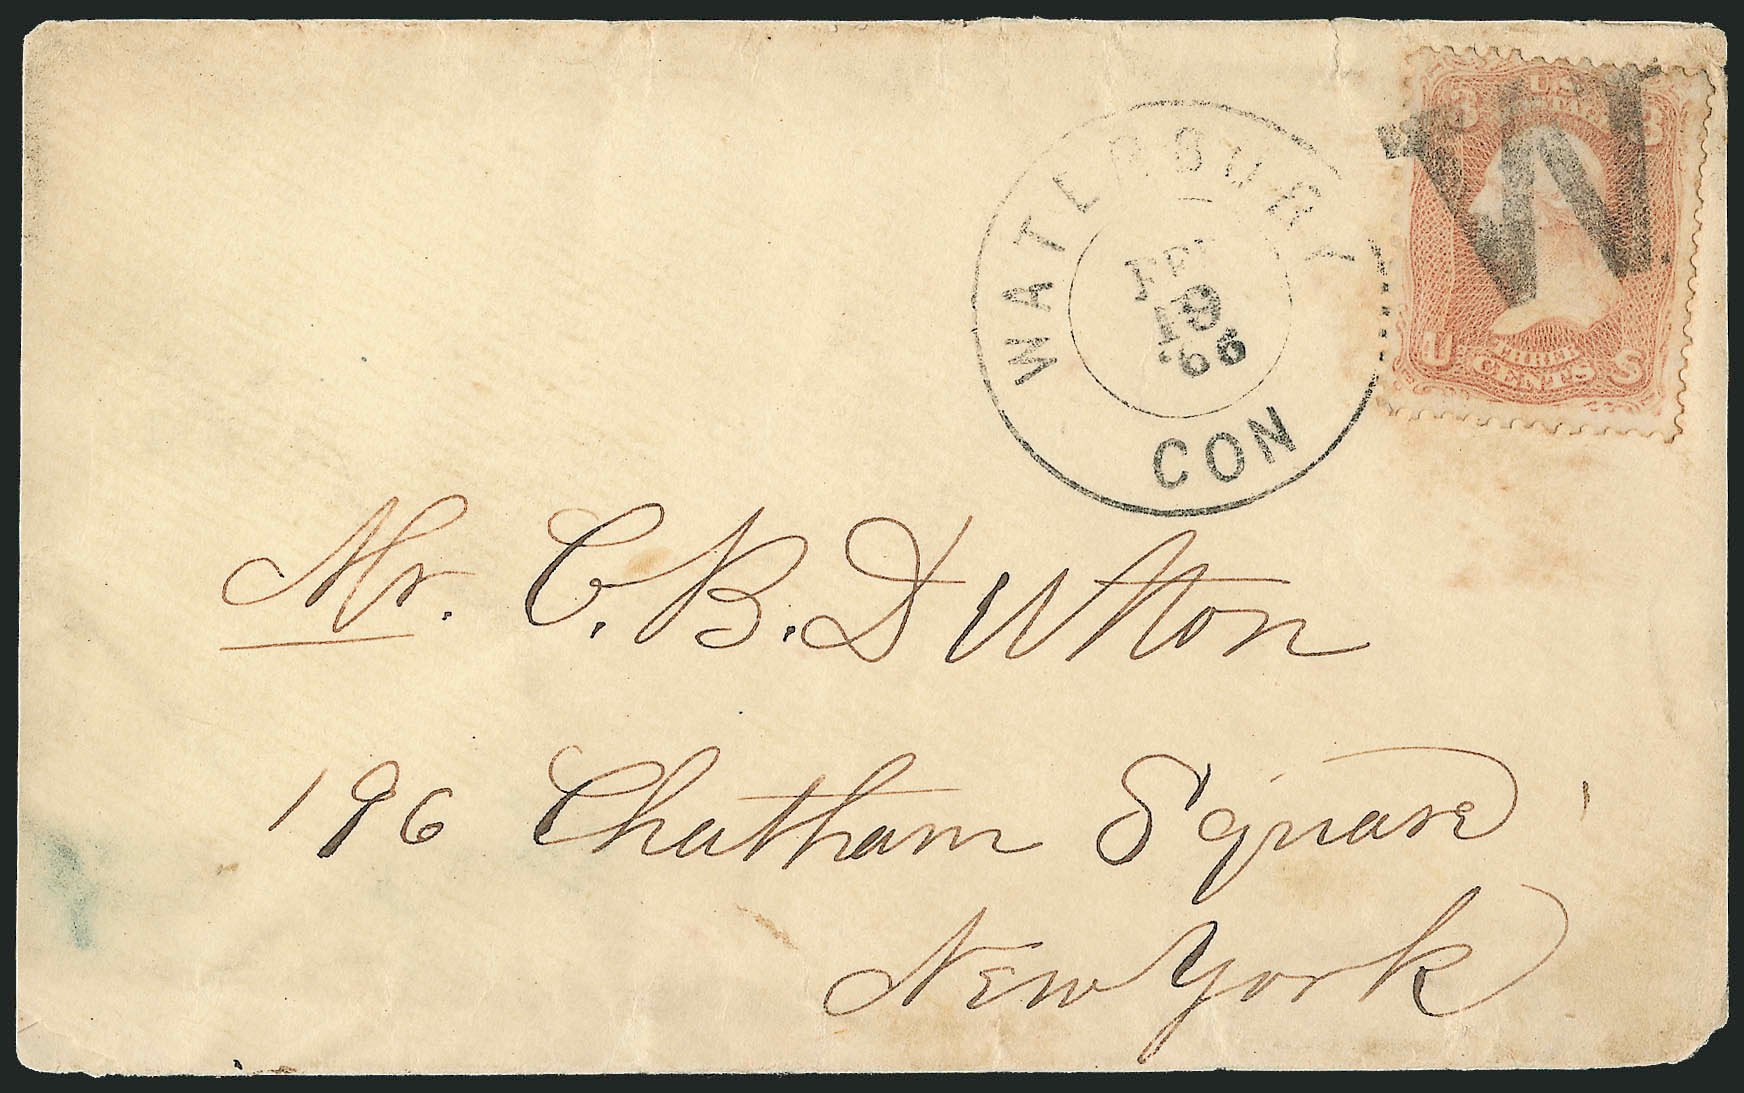 3 U.S. POSTAGE 3
WATERBURY
FEB
19
'66
CON
W
U THREE CENTS S
Mr. C. B. Dutton
196 Chatham Square
New York